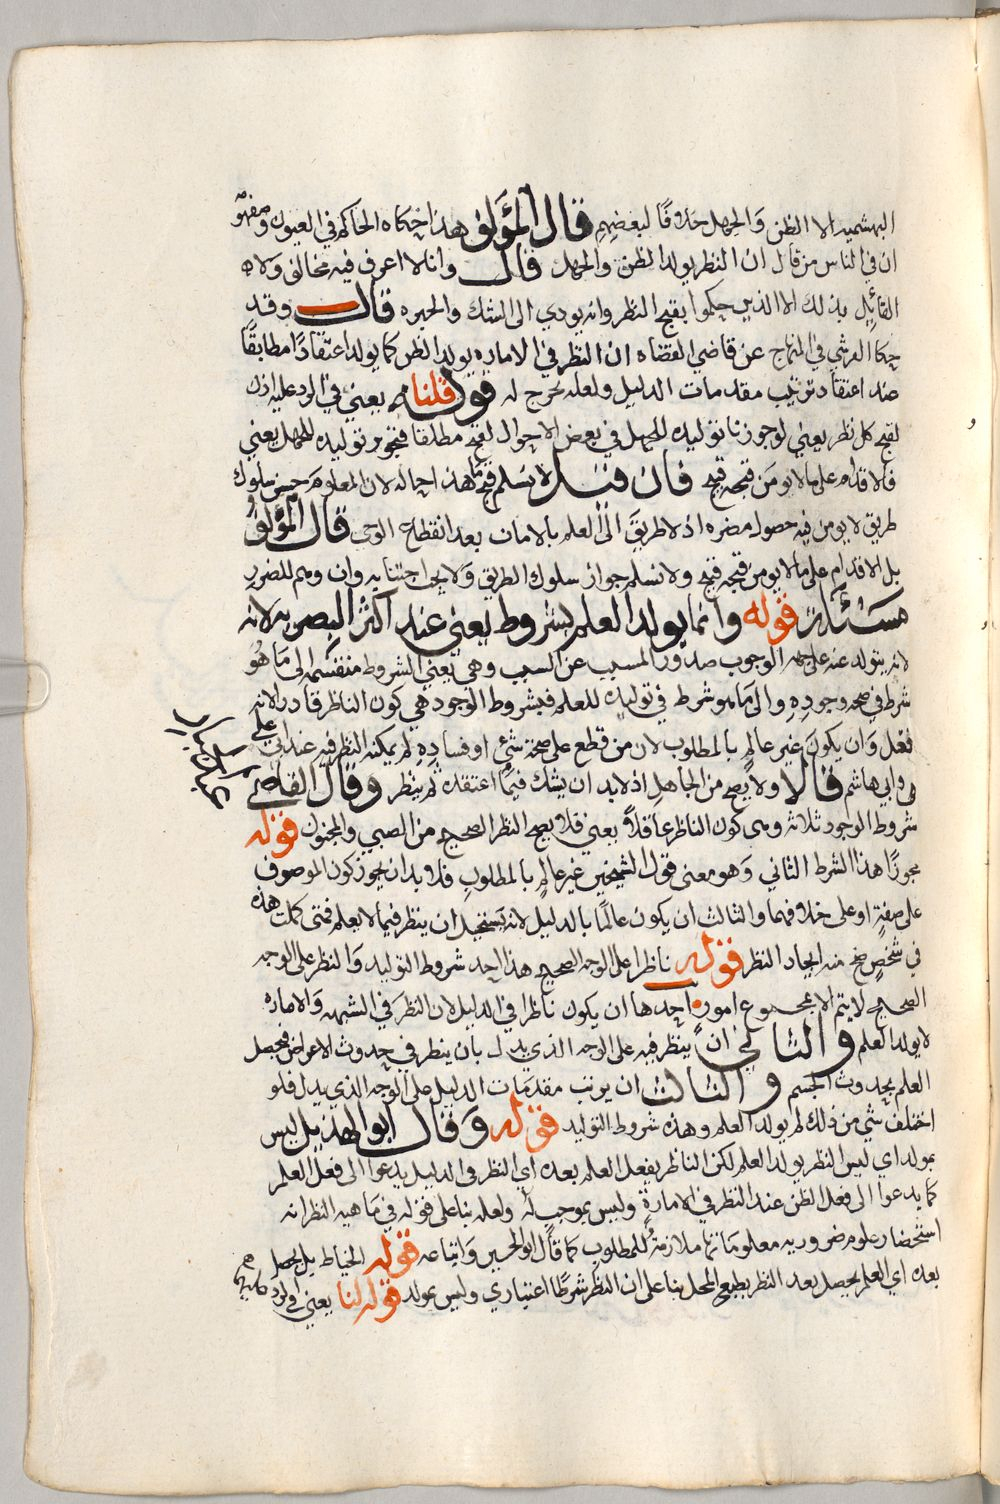 البهشميه الا الظن والجهل خلافا لبعضهم قال المؤلف هذا حكاه الحاكم في العيون ومفهومه
ان في الناس من قال ان النظر يولد الظن والجهل قال وانا لا اعرف فيه مخالف ولاه
القائل بذلك الا الذين حكموا بقبح النظر وانه يودي الى الشك والحيره قال وقد
حكا القرشي في المنهاج عن قاضي القضاه ان النظر في الاماره يولد الظن كما يولد اعتقادًا مطابقًا
عند اعتقاد ترتيب مقدمات الدليل ولعله تخرج له قوله قلنا يعني في الرد عليه اذن
لقبح كل نظر يعني لو جوزنا توليده للجهل في بعض الاحوال لقبح مطلقا فتجويز توليده للجهل يعني
فالاقدام على ما لا يومن قبحه قبيح فان قيل لا نسلم قبح هذا احاله لان المعلوم حسن سلوك
طريق لا يومن فيه حصول مضره اذ لا طريق الى العلم بالامان بعد انقطاع الوحي قال المؤلف
بل الاقدام على ما لا يومن قبحه قبيح ولا نسلم جواز سلوك الطريق ولا يجب اجتنابه وان وهم للضرر
مسئلة قوله وانما يولد العلم بشروط يعني عند اكثر البصريه لانه
لانه يتولد عنه على جهة الوجوب صدور المسبب عن السبب وهي يعني الشروط منقسمه الى ما هو
شرط في صحه وجوده والى ما هو شرط في توليده للعلم فشروط الوجود هي كون الناظر قادرا لانه
فعل وان يكون غير عالم بالمطلوب لان من قطع على صحة شي او فساده لم يمكنه النظر فيه عند ابي علي
وابي هاشم قالا ولا يصح من الجاهل اذ لا بد ان يشك فيما اعتقده ثم ينظر وقال القاضي
شروط الوجود ثلاثه وهي كون الناظر عاقلًا يعني فلا يصح النظر الصحيح من الصبي والمجنون قوله
مجوزًا هذا الشرط الثاني وهو معنى قول الشيخين غير عالم بالمطلوب فلا بد ان يجوز كون الموصوف
على صفةٍ او على خلافها والثالث ان يكون عالمًا بالدليل لانه يستحيل ان ينظر فيما لا يعلم فمتى كملت هذه
في شخصٍ صح منه ايجاد النظر قوله ناظرا على الوجه الصحيح هذا احد شروط التوليد والنظر على الوجه
الصحيح لا يتم الا بمجموع امور احدها ان يكون ناظرا في الدليل لان النظر في الشبهه والاماره
لا يولد العلم والثاني ان ينظر فيه على الوجه الذي يدل بان ينظر في حدوث الاعراض فيحصل
العلم بحدوث الجسم والثالث ان يرتب مقدمات الدليل على الوجه الذي يدل فلو
اختلف شي من ذلك لم يولد العلم وهذه شروط التوليد قوله وقال ابو الهذيل ليس
بمولد اي ليس النظر يولد العلم لكن الناظر يفعل العلم بعده اي النظر في الدليل يدعوا الى فعل العلم
كما يدعوا الى فعل الظن عند النظر في الامارة وليس بموجب له ولعله بنا على قوله في ماهيه النظر انه
استحضار علوم ضروريه معلوماتها ملازمة للمطلوب كما قال ابو الحسين واتباعه قوله الخياط بل يحصل
بعده اي العلم يحصل بعد النظر بطبع المحل بنا على ان النظر شرطًا اعتياري وليس بمولد قوله لنا يعني في الرد